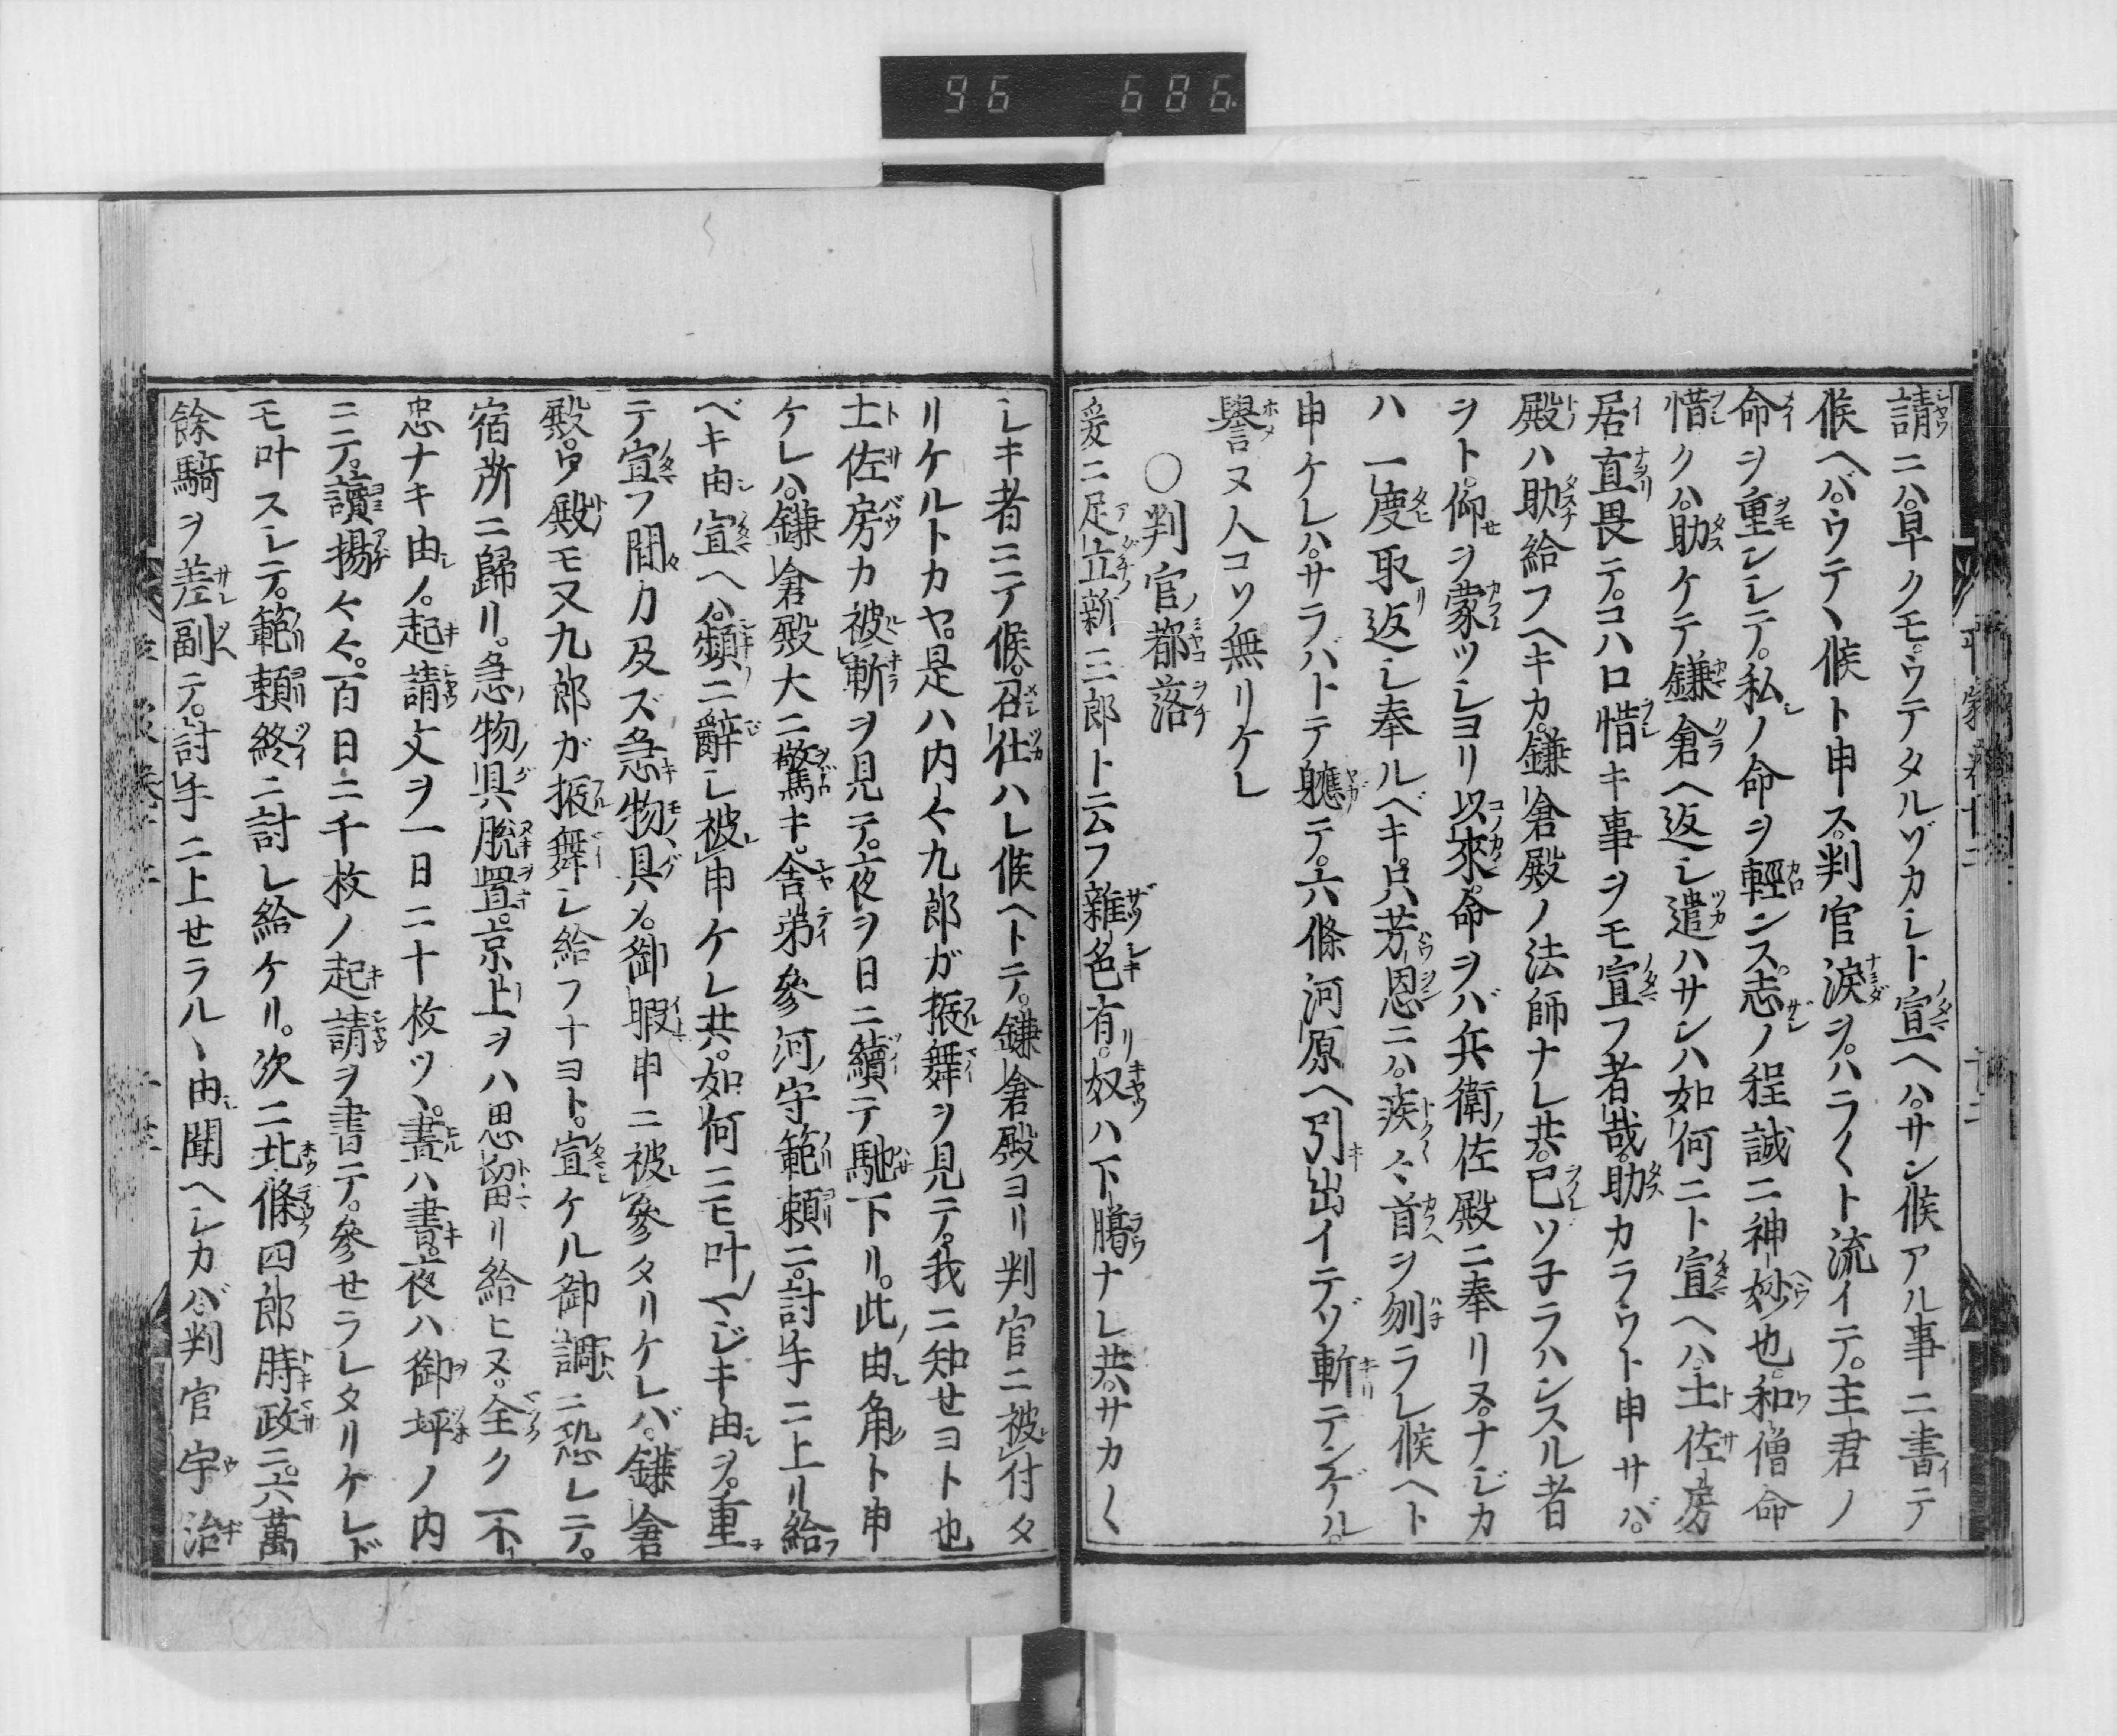 96 686
請ニハ早クモ。ウテタルゾカレト宣ヘハ。サン候アル事ニ書テ
候ヘバ。ウテヽ候ト申ス。判官淚ヲ。ハラ〱ト流イテ。主君ノ
命ヲ重ンレテ。私ノ命ヲ輕ンス。志ノ程誠ニ神妙也。和僧命
惜クハ。助ケテ鎌倉ヘ返レ遣ハサンハ如何ニト宣ヘハ。土佐房
居直畏テ。コハロ惜キ事ヲモ宣フ者哉。助カラウト申サバ。
殿ハ助給フヘキカ。鎌倉殿ノ法師ナレ共。己ソ子ラハンスル者
ヲト。仰ヲ蒙ツレヨリ以來。命ヲバ兵衛佐殿ニ奉リヌ。ナジカ
ハ一度取返レ奉ルベキ。只芳恩ニハ。疾々首ヲ刎ラレ候ヘト
申ケレハ。サラバトテ軈テ。六條河原ヘ引出イテゾ斬テンゲル。
譽ヌ人コソ無リケレ
〇判官都落
爰ニ足立新三郎ト云フ雜色有。奴ハ下﨟ナレ共。サカ〱
レキ者ニテ候。召仕ハレ候ヘトテ。鎌倉殿ヨリ判官ニ被付タ
リケルトカヤ。是ハ内々九郎ガ振舞ヲ見テ。我ニ知せヨト也
土佐房カ被斬ヲ見テ。夜ヲ日ニ續テ馳下リ。此由角ト申
ケレハ。鎌倉殿大ニ驚キ。舎弟參河守範頼ニ。討手ニ上リ給
ベキ由宣ヘハ。頻ニ辭レ被申ケレ共。如何ニモ叶マジキ由ヲ。重
テ宣フ間。力及ズ急物具〆。御暇申ニ被參タリケレバ。鎌倉
殿。ワ殿モ又九郎ガ振舞レ給フナヨト。宣ケル御調ニ恐レテ。
宿所ニ歸リ。急物具脱置。京上ヲハ思留リ給ヒヌ。全ク不
忠ナキ由ノ。起請文ヲ一日ニ十枚ツヽ。晝ハ書。夜ハ御坪ノ内
ニテ。讀揚々々。百日ニ千枚ノ起請ヲ書テ。參せラレタリケレド
モ叶スレテ。範頼終ニ討レ給ケリ。次ニ北條四郎時政ニ。六萬
餘騎ヲ差副テ。討手ニ上せラルヽ由聞ヘレカバ。判官宇治